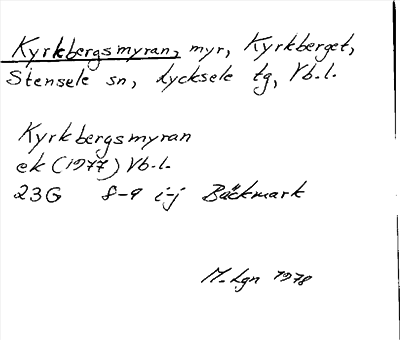 Kyrkbergsmyran, myr, Kyrkberget,
Stensele sn, Lycksele tg, Vb.l.
Kyrkbergsmyran
ek (1977) Vb.l.
23G 8-9 i-j Bäckmark
M.Lgn 1978